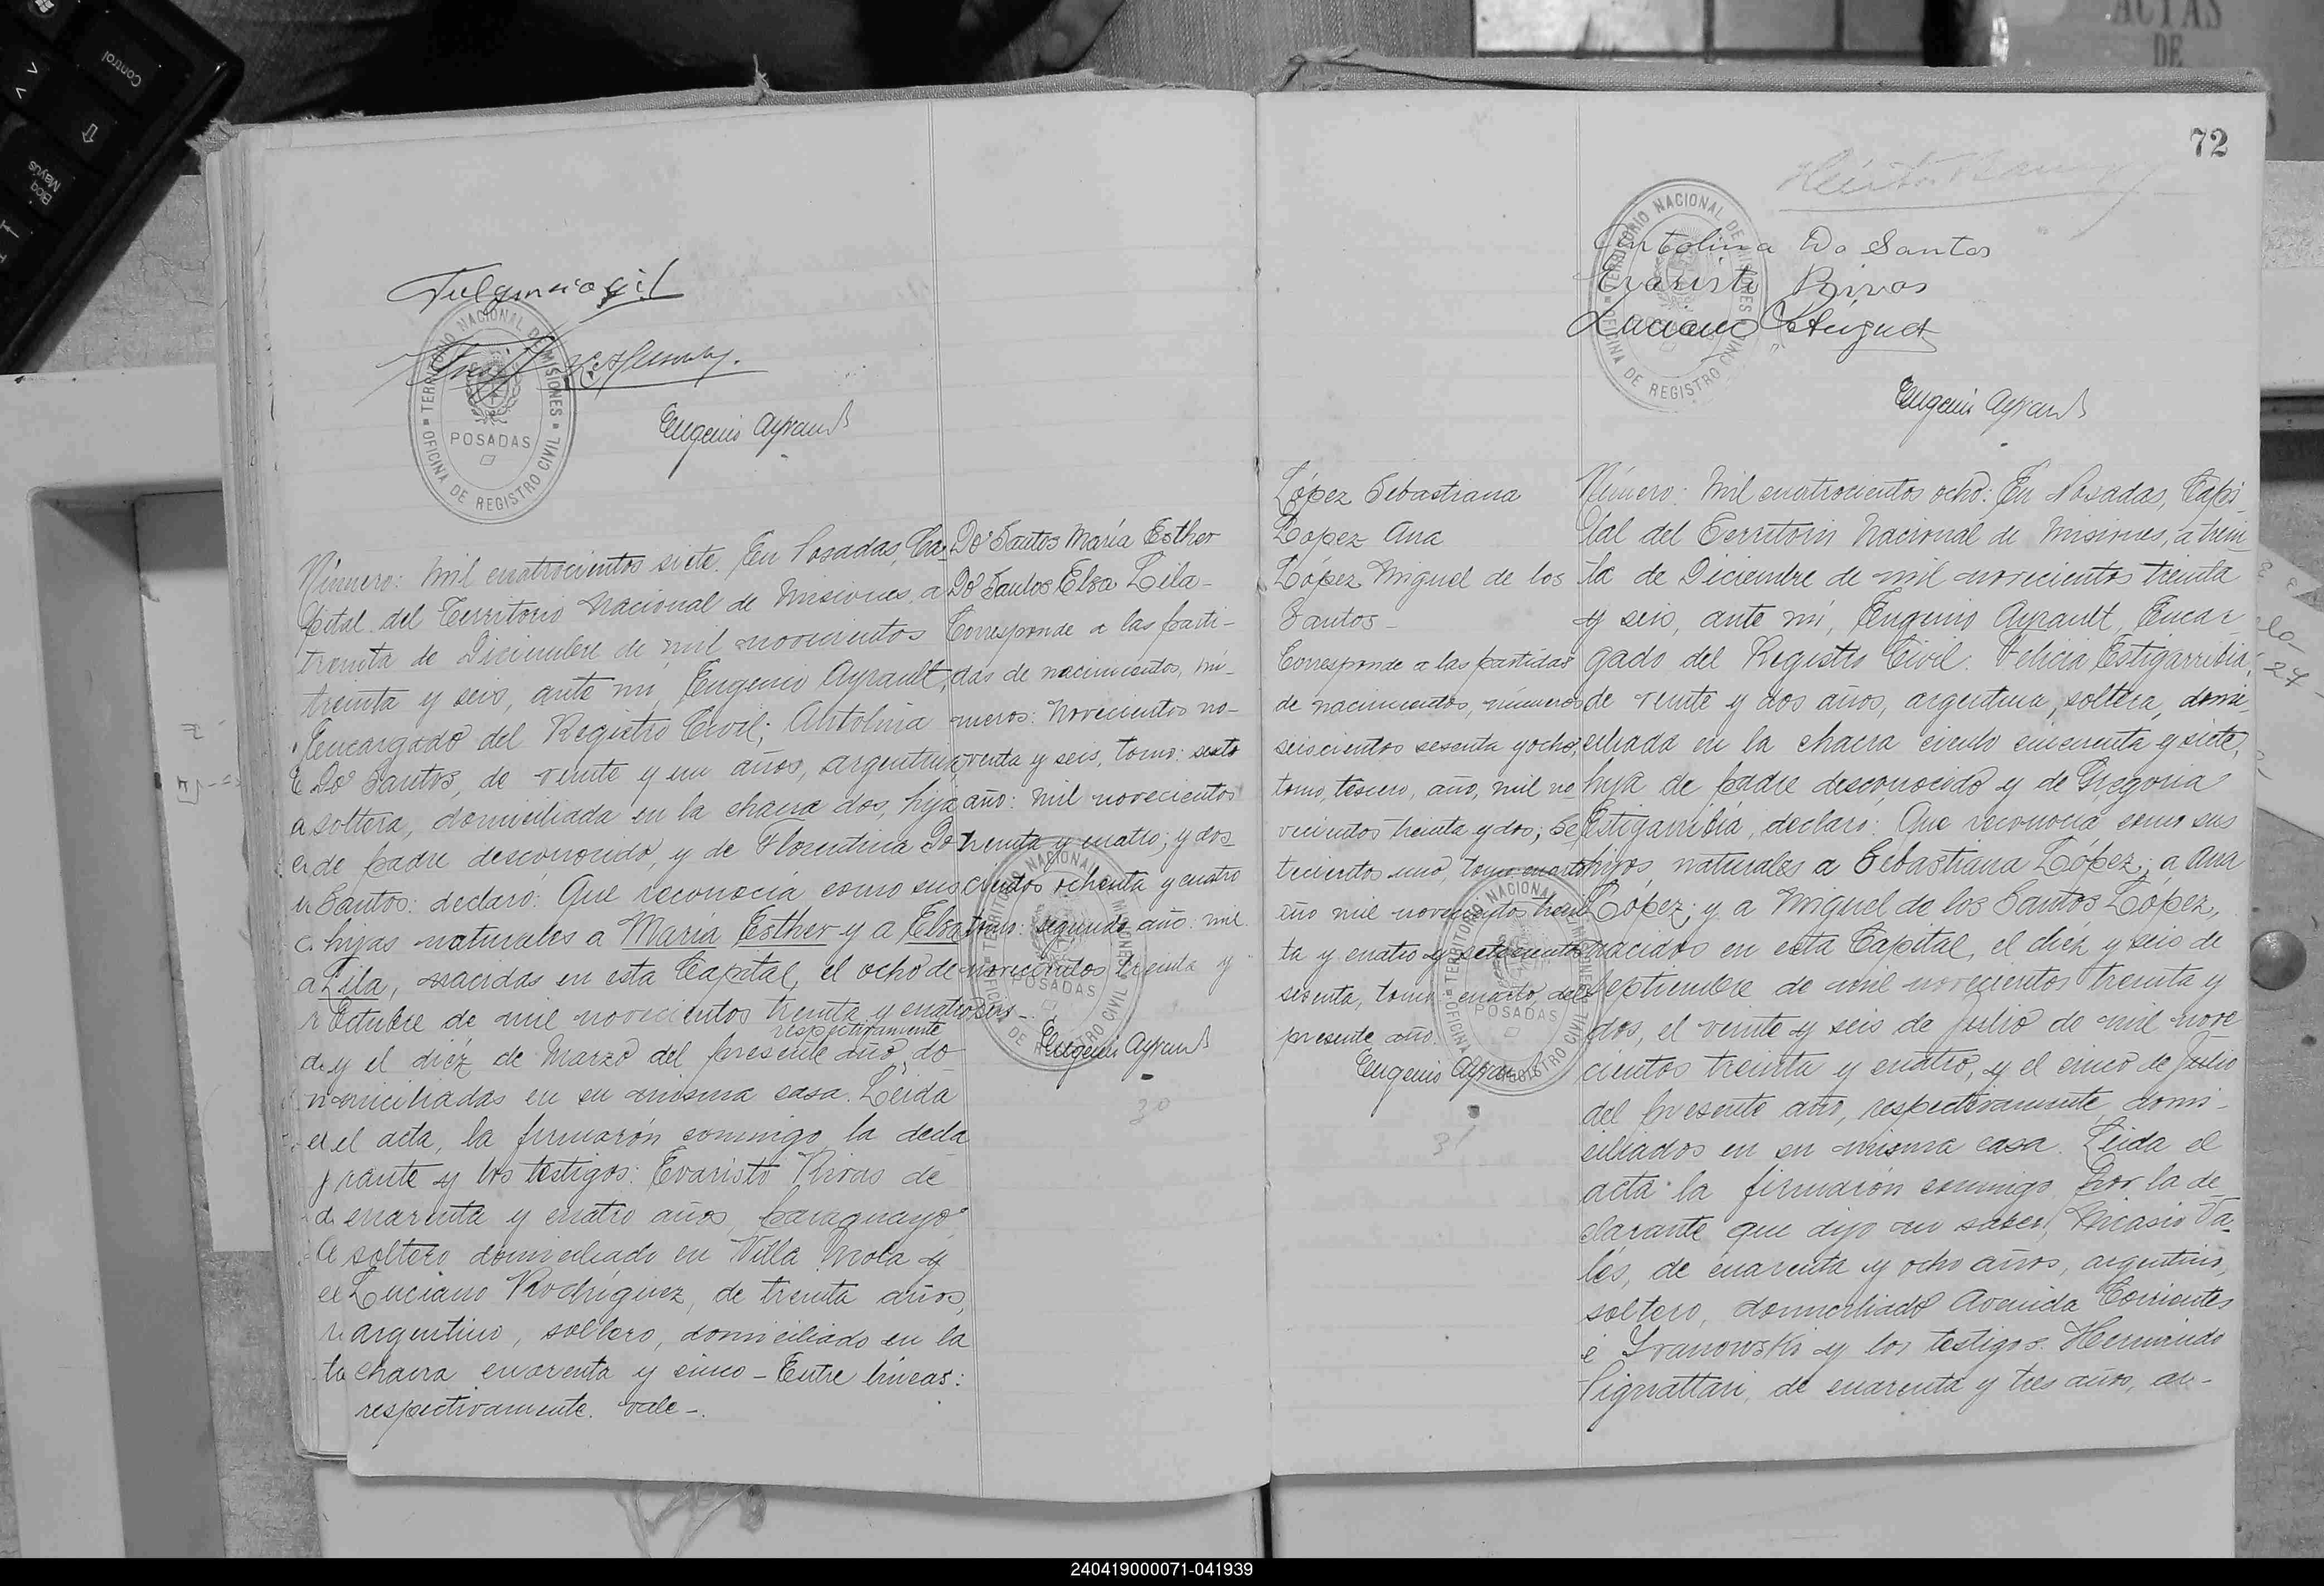 Control
Bloq
Mayús
ACTAS
DE
72
TERRITORIO NACIONAL DE MISIONES
POSADAS
OFICINA DE REGISTRO CIVIL
Eugenio Ayrault
Número: Mil cuatrocientos siete. En Posadas, Ca-
pital del Territorio Nacional de Misiones, a
treinta de Diciembre de mil novecientos
treinta y seis, ante mi, Eugenio Ayrault,
Encargado del Registro Civil; Antolina
Do Santos, de veinte y un años, argentina
soltera, domiciliada en la chacra dos, hija
de padre desconocido, y de Florentina Do
Santos: declaró: Que reconocía como sus
hijas naturales a María Esther y a Elsa
Lila, nacidas en esta Capital, el ocho de
Octubre de mil novecientos treinta y cuatro
respectivamente
y el diéz de Marzo del presente año, do-
miciliadas en su misma casa. Leida
el acta, la firmarón conmigo la decla
rante y los testigos: Evaristo Rivas de
cuarenta y cuatro años, paraguayo,
soltero domiciliado en Villa Mola y
Luciano Rodríguez, de treinta años,
argentino, soltero, domiciliado en la
chacra cuarenta y cinco - Entre lineas:
respectivamente. vale-.
Do Santos María Esther
Do Santos Elsa Lila-
Corresponde a las parti-
das de nacimientos, nú-
meros: Novecientos no-
venta y seis, tomo: sexto
año: mil novecientos
treinta y cuatro; y dos-
cientos ochenta y cuatro
tomo: segundo año: mil
novecientos treinta y
seis-
Eugenio Ayrault
30
TERRITORIO NACIONAL DE MISIONES
POSADAS
OFICINA DE REGISTRO CIVIL
TERRITORIO NACIONAL DE MISIONES
OFICINA DE REGISTRO CIVIL
Antolina Do Santos
Evaristo Rivas
Eugenio Ayrault
López Sebastiana
López Ana
López Miguel de los
Santos-
Corresponde a las partidas
de nacimientos, números
seiscientos sesenta y ocho,
tomo, tercero, año, mil no
vecientos treinta y dos; se
tecientos uno, tomo cuarto
año mil novecientos trein
ta y cuatro y setecientos
sesenta, tomo cuarto, del
presente año.
Eugenio Ayrault
31
TERRITORIO NACIONAL DE MISIONES
POSADAS
OFICINA DE REGISTRO CIVIL
Número: Mil cuatrocientos ocho: En Posadas, Capi-
tal del Territorio Nacional de Misiones, a trein-
ta de Diciembre de mil novecientos treinta
y seis, ante mi, Eugenio Ayrault, Encar-
gado del Registro Civil: Felicia Estigarribia,
de veinte y dos años, argentina, soltera, domi-
ciliada en la chacra ciento cincuenta y siete,
hija de padre desconocido y de Gregoria
Estigarribia, declaró: Que reconocía como sus
hijos naturales a Sebastiana López; a Ana
López; y a Miguel de los Santos López,
nacidos en esta Capital, el diéz y seis de
Septiembre de mil novecientos treinta y
dos, el veinte y seis de Julio de mil nove-
cientos treinta y cuatro, y el cinco de Julio
del presente año, respectivamente, domi-
ciliados en su misma casa. Leida el
acta la firmarón conmigo por la de-
clarante que dijo no saber, Nicasio Va-
lés, de cuarenta y ocho años, argentino,
soltero, domiciliado Avenida Corrientes
é Ivanowski y los testigos: Hermindo
Pignattari, de cuarenta y tres años, ar-
240419000071-041939